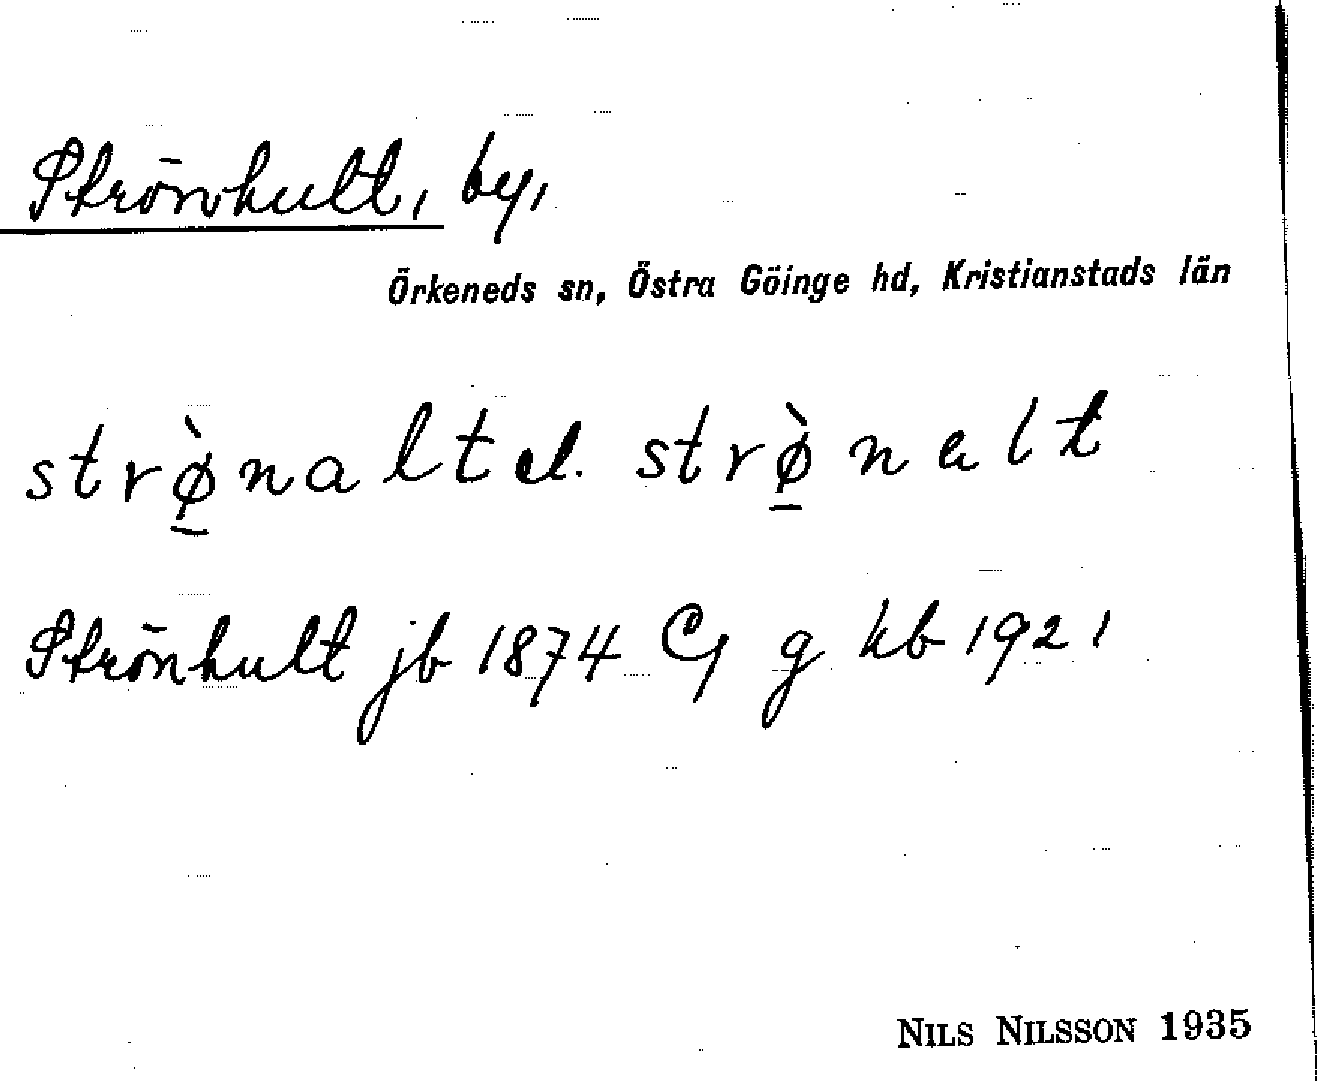 Strönhult, by,
Örkeneds sn, Östra Göinge hd, Kristianstads län
strø̲̀nalt el. strø̲̀nalt
Strönhult jb 1874 C1 g kb 1921
NILS NILSSON 1935